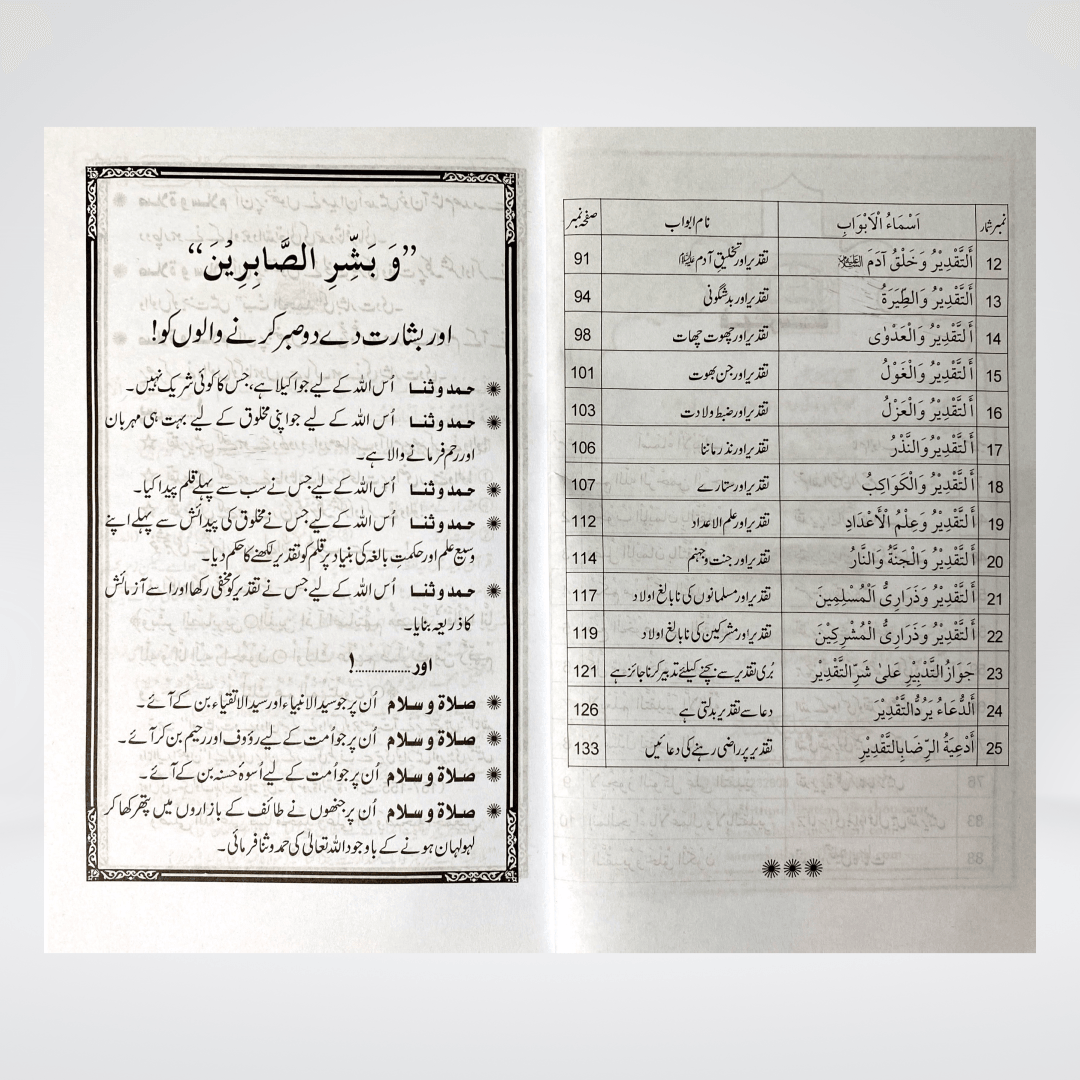 نمبر شمار اَسْمَاءُ الْاَبْوَابِ نام ابواب صفحہ نمبر
12 اَلتَّقْدِیْرُ وَخَلْقُ آدَمَ تقدیر اور تخلیق آدم 91
13 اَلتَّقْدِیْرُ وَالطِّیَرَةُ تقدیر اور بدشگونی 94
14 اَلتَّقْدِیْرُ وَالْعَدْوٰی تقدیر اور چھوت چھات 98
15 اَلتَّقْدِیْرُ وَالْغَوْلُ تقدیر اور جن بھوت 101
16 اَلتَّقْدِیْرُ وَالْعَزْلُ تقدیر اور ضبط ولادت 103
17 اَلتَّقْدِیْرُ وَالنَّذْرُ تقدیر اور نذر ماننا 106
18 اَلتَّقْدِیْرُ وَالْکَوَاکِبُ تقدیر اور ستارے 107
19 اَلتَّقْدِیْرُ وَعِلْمُ الْأَعْدَادِ تقدیر اور علم الاعداد 112
20 اَلتَّقْدِیْرُ وَالْجَنَّةُ وَالنَّارُ تقدیر اور جنت و جہنم 114
21 اَلتَّقْدِیْرُ وَذَرَارِیُّ الْمُسْلِمِینَ تقدیر اور مسلمانوں کی نابالغ اولاد 117
22 اَلتَّقْدِیْرُ وَذَرَارِیُّ الْمُشْرِکِیْنَ تقدیر اور مشرکین کی نابالغ اولاد 119
23 جَوَازُ التَّدْبِیْرِ عَلیٰ شَرِّ التَّقْدِیْرِ بُری تقدیر سے بچنے کیلئے تدبیر کرنا جائز ہے 121
24 اَلدُّعَاءُ یَرُدُّ التَّقْدِیْرَ دعا سے تقدیر بدلتی ہے 126
25 أَدْعِیَةُ الرِّضَا بِالتَّقْدِیْرِ تقدیر پر راضی رہنے کی دعائیں 133
”وَ بَشِّرِ الصَّابِرِیْنَ“
اور بشارت دے دو صبر کرنے والوں کو!
حمد و ثنا اُس اللہ کے لیے جو اکیلا ہے، جس کا کوئی شریک نہیں۔
حمد و ثنا اُس اللہ کے لیے جو اپنی مخلوق کے لیے بہت ہی مہربان
اور رحم فرمانے والا ہے۔
حمد و ثنا اُس اللہ کے لیے جس نے سب سے پہلے قلم پیدا کیا۔
حمد و ثنا اُس اللہ کے لیے جس نے مخلوق کی پیدائش سے پہلے اپنے
وسیع علم اور حکمتِ بالغہ کی بنیاد پر قلم کو تقدیر لکھنے کا حکم دیا۔
حمد و ثنا اُس اللہ کے لیے جس نے تقدیر کو مخفی رکھا اور اسے آزمائش
کا ذریعہ بنایا۔
اور.................!
صلاة و سلام اُن پر جو سید الانبیاء اور سید الاتقیاء بن کے آئے۔
صلاة و سلام اُن پر جو اُمت کے لیے رؤوف اور رحیم بن کر آئے۔
صلاة و سلام اُن پر جو اُمت کے لیے اُسوۂ حسنہ بن کے آئے۔
صلاة و سلام اُن پر جنھوں نے طائف کے بازاروں میں پتھر کھا کر
لہولہان ہونے کے باوجود اللہ تعالیٰ کی حمد و ثنا فرمائی۔